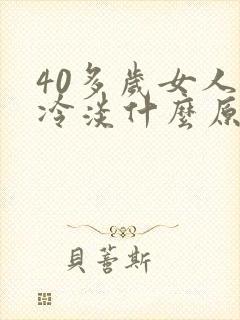 40多歲女人
冷淡什麼原
貝蕾斯